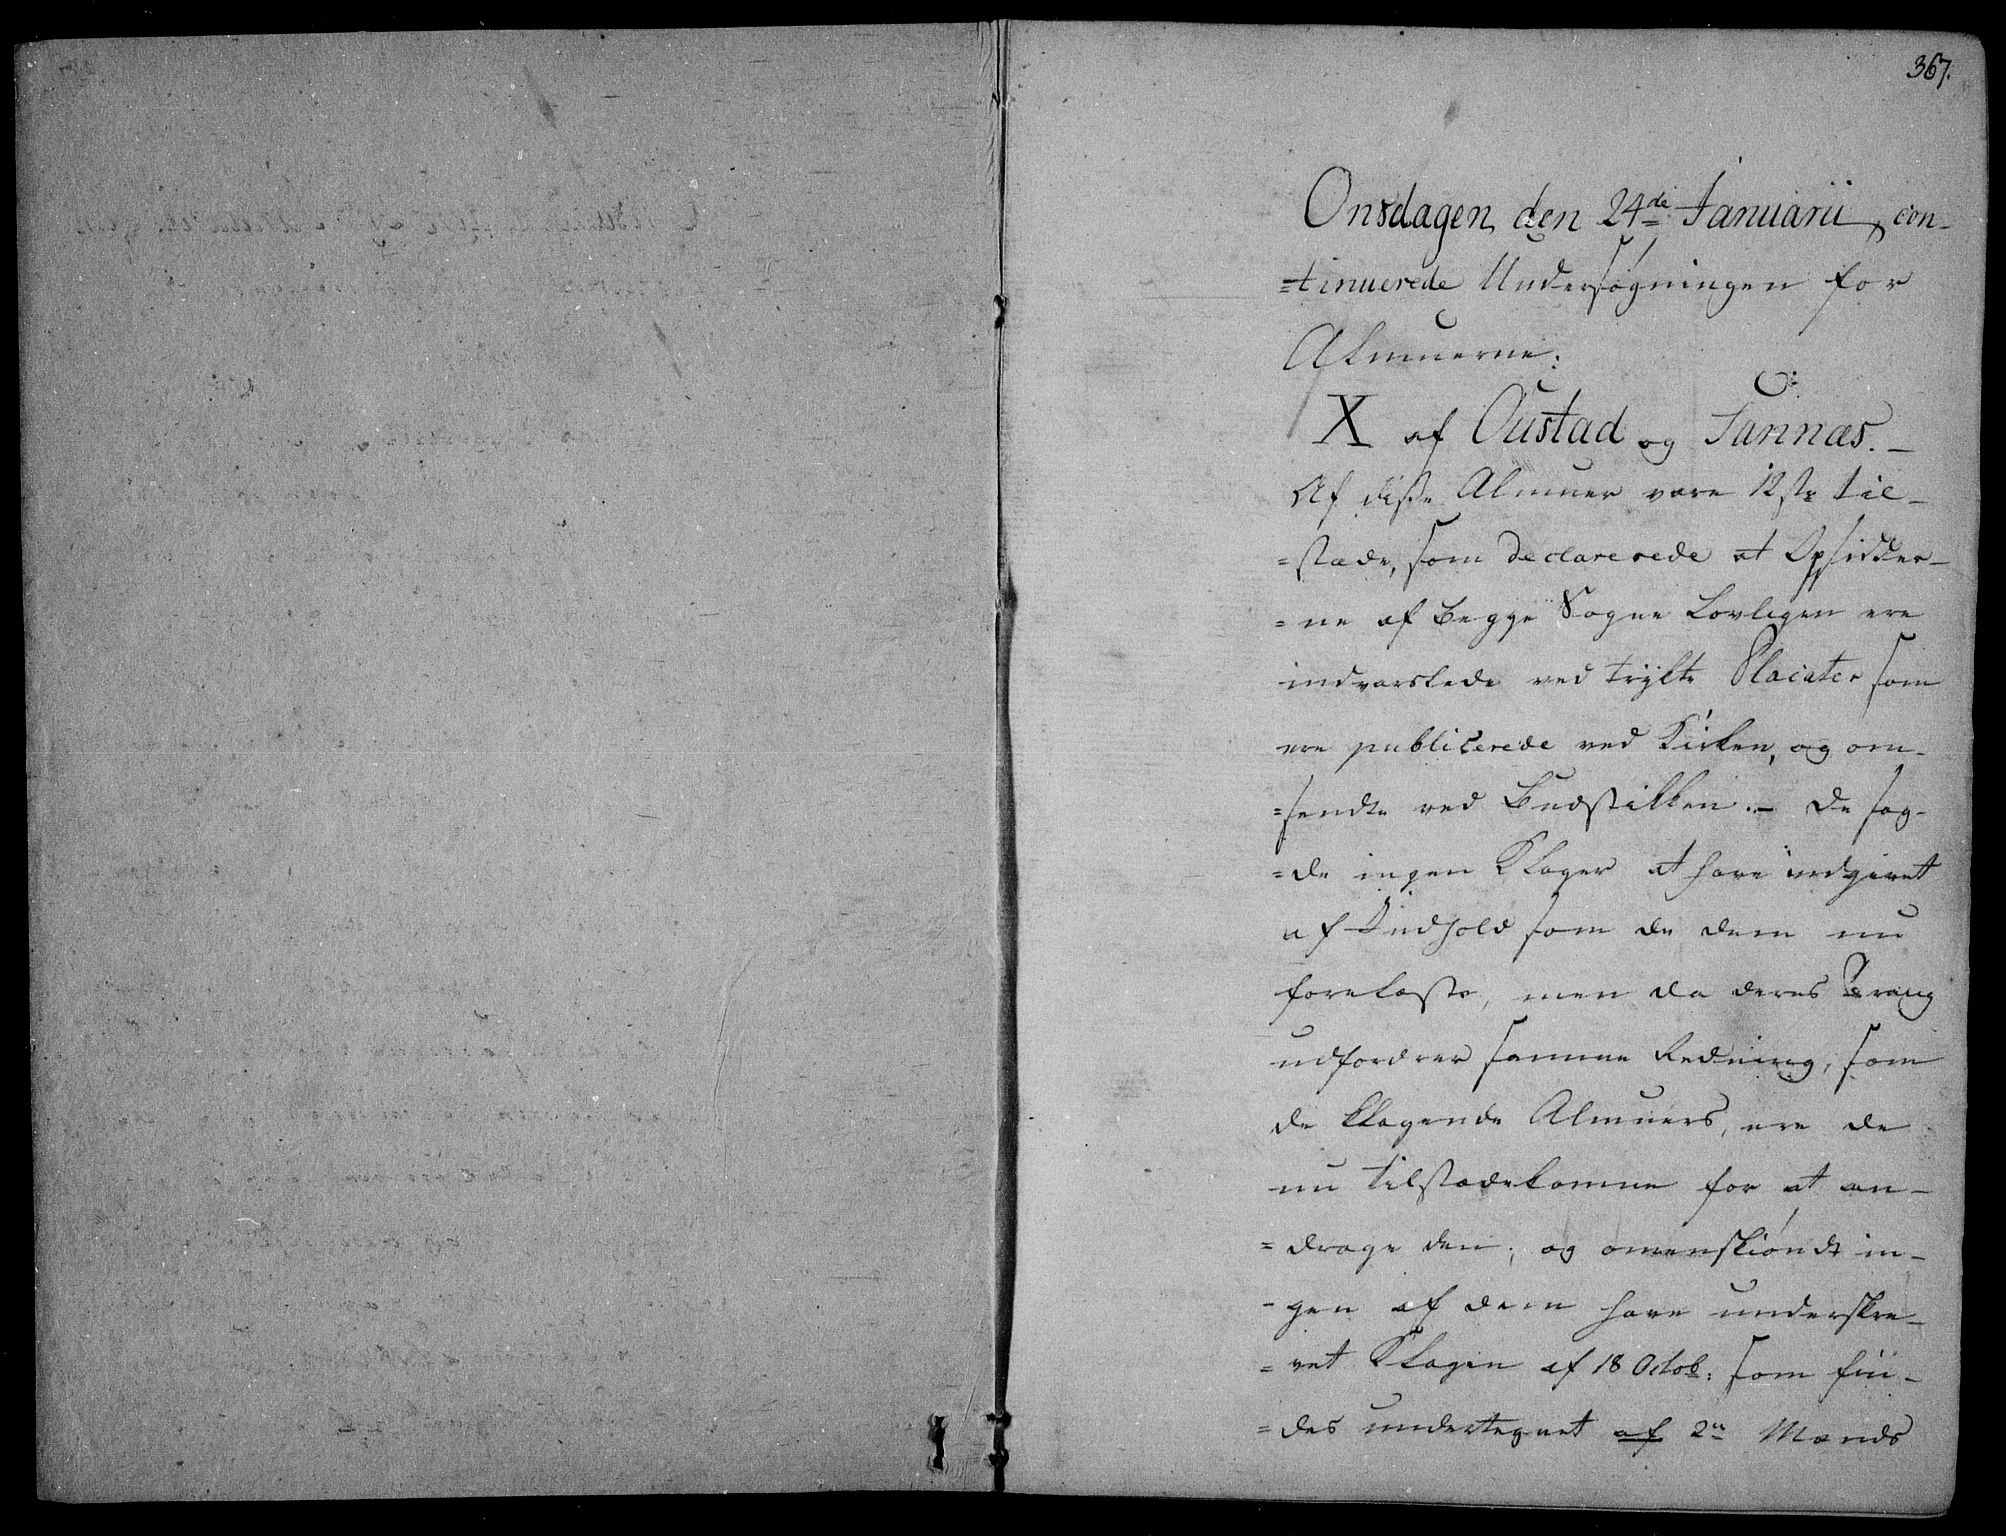 367.
Onsdagen den 24de Januarii, con-
=tinuerede Undersøgningen for
Almuerne:
X af Oustad og Sannæs. -
Af disse Almuer vare 12ste til-
=stæde, som declarerede at Opsidder-
=ne af begge Sogne Lovligen ere
indvarslede ved trÿkte Placater som
ere publicerede ved Kirken, og om-
=sendte ved Budstikken. - De sag-
=de ingen Klager at have indgivet
af Indhold som de dem nu
forelæste, men da deres Trang
udfordrer samme Redning, som
de klagende Almuers, ere de
nu tilstædekomne for at an-
=drage den; og omenskiøndt in-
-gen af dem have underskre-
=vet Klagen af 18 Octob: som fin-
=des undertegnet af 2n Mænds